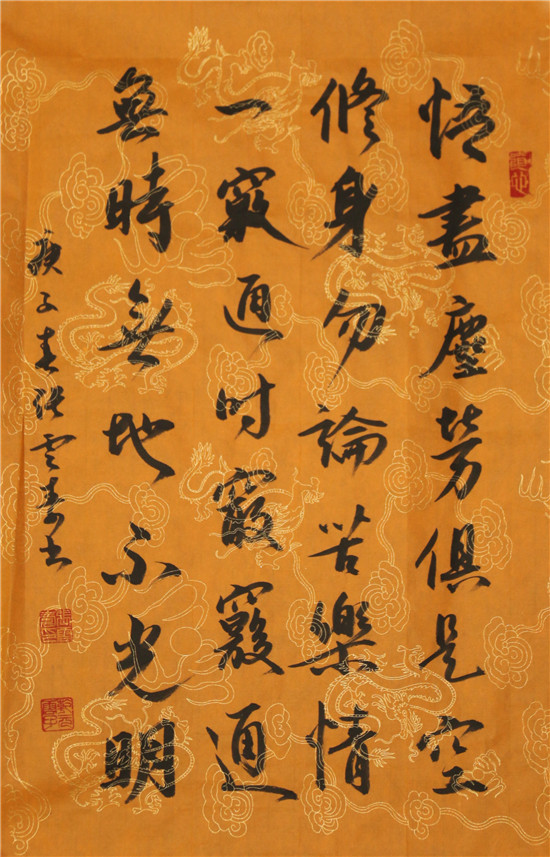 悟盡塵勞俱是空
修身勿論苦樂情
一竅通时竅竅通
無時無地不光明
庚子春张雲寿书